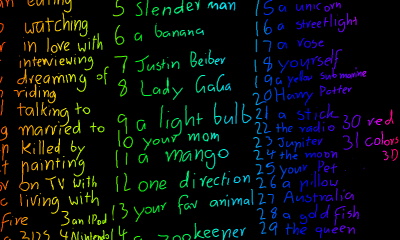 eating
watching
in love with
interviewing
dreaming of
riding
talking to
married to
killed by
painting
on TV with
living with
Fire
3 an iPod
4 Nintendo
5 Slender man
6 a banana
7 Justin Beiber
8 Lady GaGa
9 a light bulb
10 your mom
11 a mango
12 one direction
13 your fav animal
14 a zookeeper
15 a unicorn
16 a streetlight
17 a rose
18 yourself
19 a yellow submarine
20 Harry Potter
21 a stick
22 the radio
23 Jupiter
24 the moon
25 your Pet
26 a pillow
27 Australia
28 a gold fish
29 the queen
30 red
31 colors
3D